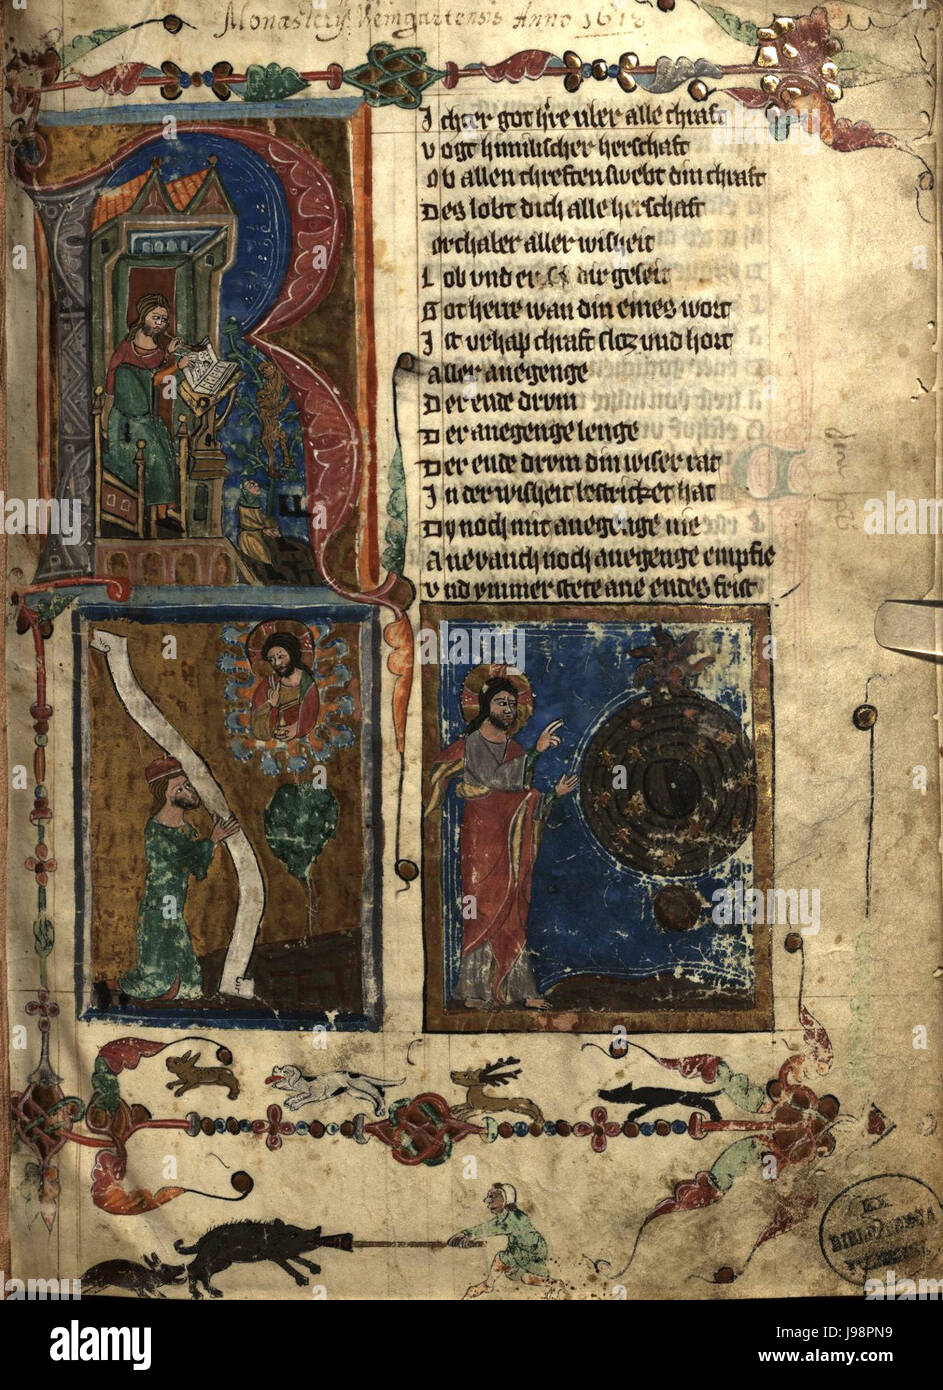 Monasterij Weingartensis Anno 1618
Ichter got hre vber alle chraft
vogt himilischer herschaft
ob allen chreften swebt din chraft
Des lobt dich alle herschaft
orchaler aller wisheit
Lob vnd er dir geseit
Got herre wan din eines wort
Ist vrhap chraft sloz vnd hort
aller anegenge
Der ende drvm
Der anegenge lenge
Der ende drvm din wiser rat
In der wisheit bestricket hat
Dv noch nit anegenge nie
Ane vanch noch anegenge empfie
vnd ymmer stete ane endes frist
EX
BIBL
a alamy stock photo
alamy
Image ID: J98PN9
www.alamy.com